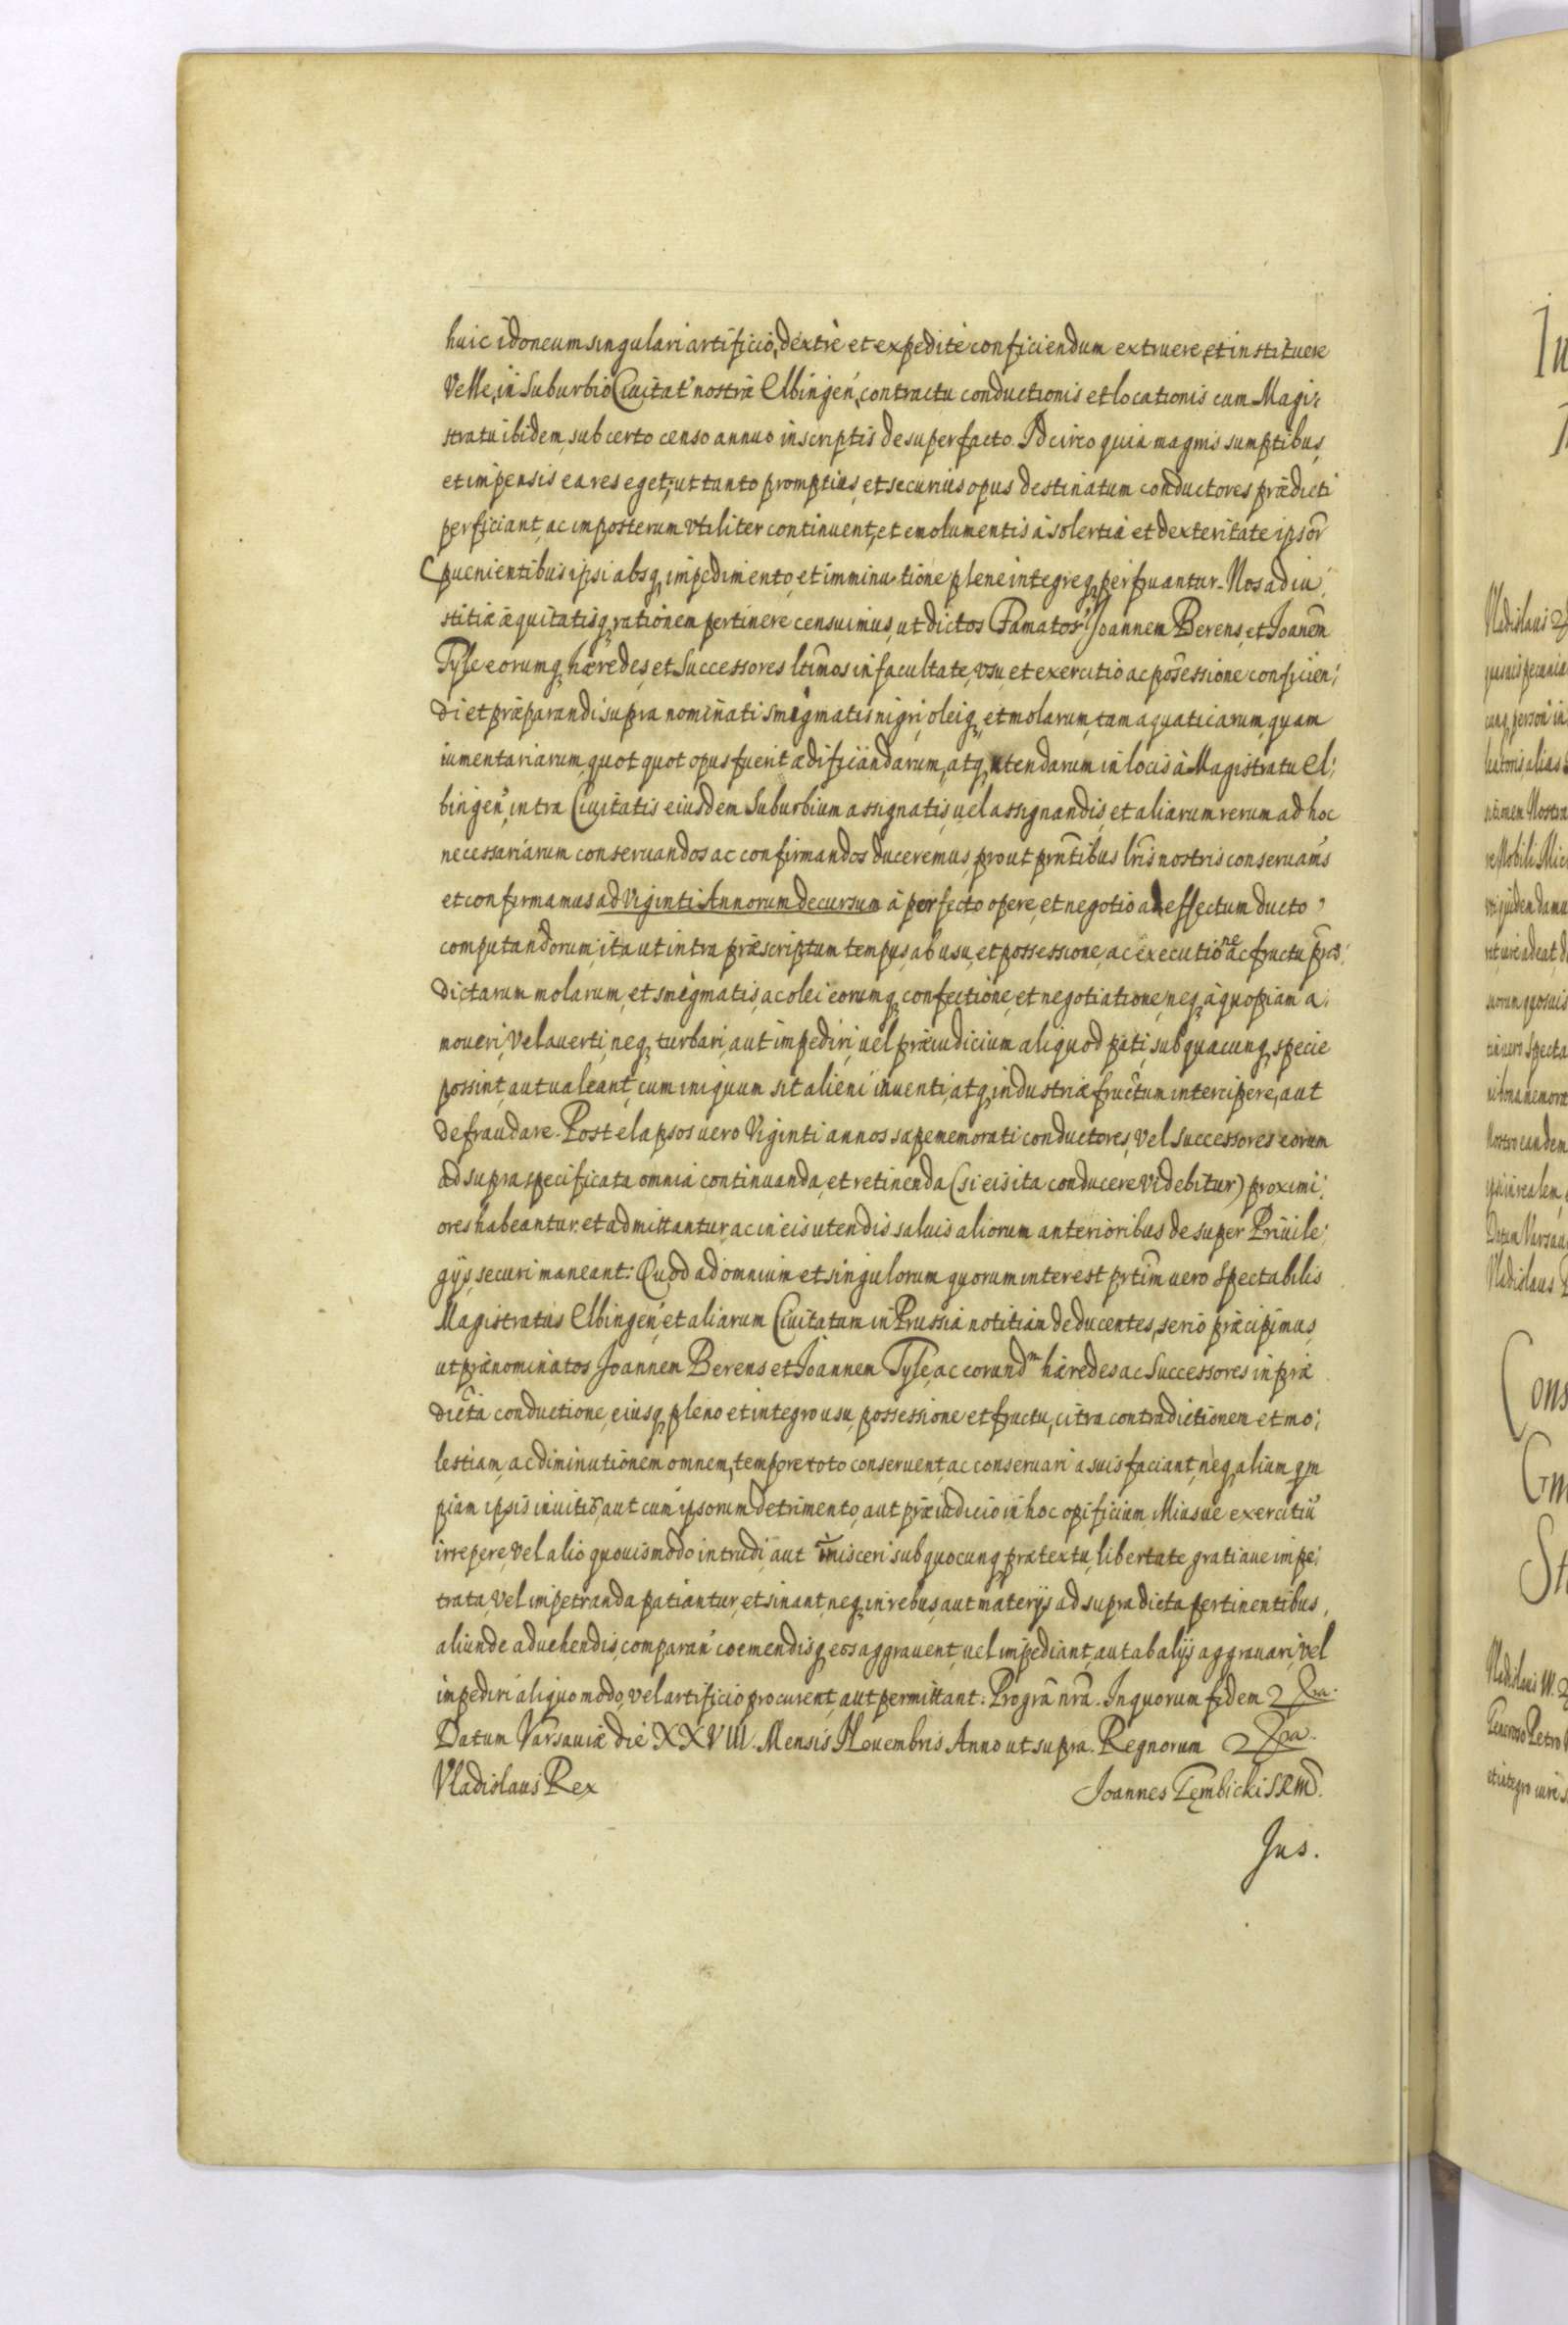 huic idoneum singulari artificio, dextrè et expeditè conficiendum extruere, et instituere
Velle, in Suburbio Ciuitat' nostræ Elbingen', contractu conductionis et locationis cum Magi:
stratu ibidem, sub certo censo annuo in scriptis desuper facto. Idcirco quia magnis sumptibus,
et impensis ea res eget, ut tanto promptius, et securius opus destinatum conductores prædicti
perficiant, ac imposterum vtiliter continuent, et emolumentis à solertia et dexteritate ipsor̄
puenientibus ipsi absq, impedimento, et imminutione plene integreq, perfruantur. Nos ad iu:
stitiæ æquitatisq, rationem pertinere censuimus, ut dictos Famatos Joannem Berens, et Joanem̄
Tyle eorumq, hæredes, et Successores ltimos in facultate, vsu, et exercitio ac possessione conficien:
di et præparandi supra nominati smigmatis nigri, oleiq, et molarum, tam aquaticarum, quam
iumentariarum, quot quot opus fuerit ædificandarum, atq, utendarum in locis à Magistratu El:
bingen', intra Ciuitatis eiusdem Suburbium assignatis, uel assignandis, et aliarum rerum ad hoc
necessariarum conseruandos ac confirmandos duceremus, prout prn̄tibus lrīs nostris conseruam's
et confirmamus ad Viginti Annorum decursum à perfecto opere, et negotio ad effectum ducto,
computandorum, ita ut intra præscriptum tempus, ab usu, et possessione, ac executione ac fructu præ:
dictarum molarum, et smegmatis, ac olei eorumq, confectione, et negotiatione, neq, à quopiam a:
moueri, Vel auerti, neq, turbari, aut impediri, uel præiudicium aliquod pati, sub quacunq, specie
possint, aut ualeant, cum iniquum sit alieni inuenti, atq, industriæ fructum intercipere, aut
defraudare. Post elapsos uero Viginti annos sæpememorati conductores, Vel Successores eorum
ad supra specificata omnia continuanda, et retinenda (si eis ita conducere Videbitur) proximi:
ores habeantur, et admittantur, ac in eis utendis saluis aliorum anterioribus desuper Priuile:
gijs, securi maneant: Quod ad omnium et singulorum quorum interest prt̄im uero Spectabilis
Magistratus Elbingen', et aliarum Ciuitatum in Prussia notitiam deducentes, serio præcipimus,
ut prænominatos Joannem Berens et Joannem Tyle, ac eorundm hæredes ac Successores in præ
dicta conductione, eiusq, pleno et integro usu, possessione et fructu, citra contradictionem et mo:
lestiam, ac diminutionem omnem, tempore toto conseruent, ac conseruari a suis faciant, neq, alium qm̄
piam ipsis inuitis, aut cum ipsorum detrimento, aut præiudicio in hoc opificium, illiusue exercitiū
irrepere, Vel alio quouismodo intrudi, aut im̄isceri sub quocunq, prætextu, libertate gratiaue impe:
trata, Vel impetranda patiantur, et sinant, neq, in rebus, aut materijs ad supradicta pertinentibus,
aliunde aduehendis, comparan' coemendisq, eos aggrauent, uel impediant, aut ab alijs aggrauari, Vel
impediri aliquo modo, Vel artificio procurent, aut permittant: Pro grā nrā. In quorum fidem
Datum Varsauiæ die XXVIII. Mensis Nouembris Anno ut supra. Regnorum
Vladislaus Rex Joannes Gembicki SRMS.
Jus.